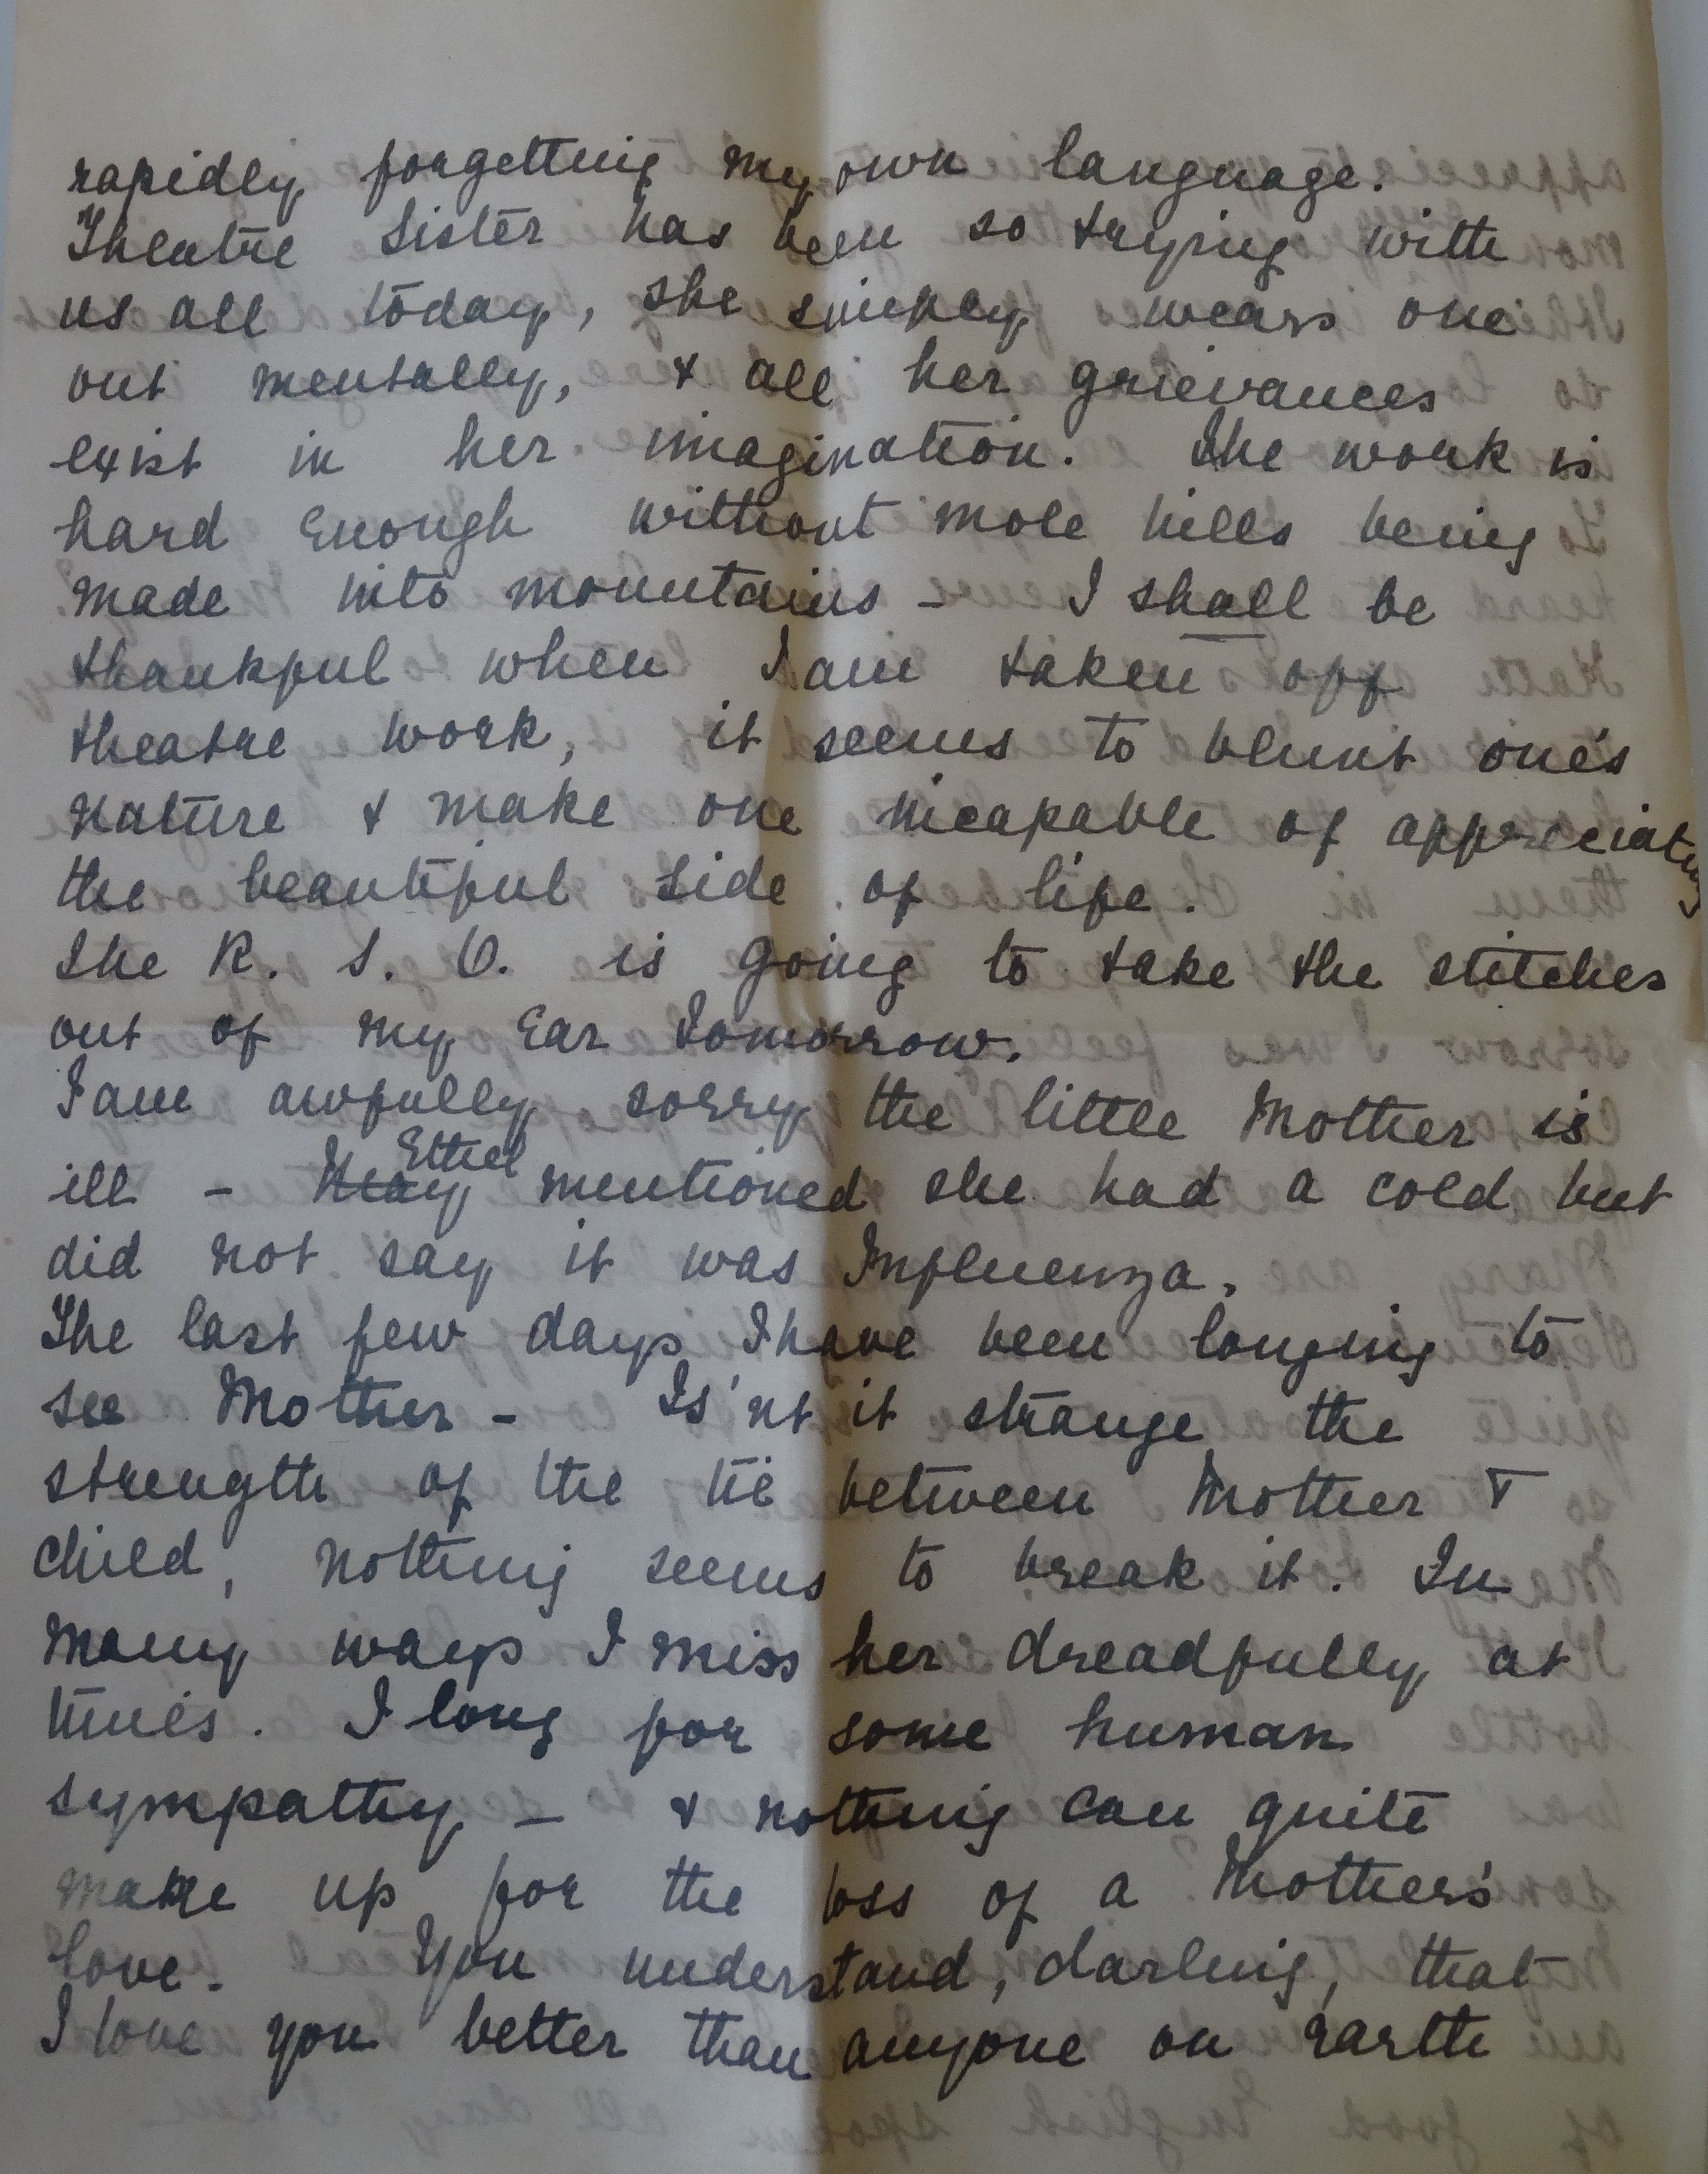 rapidly forgetting my own language.
Theatre Sister has been so trying with
us all today, she simply wears one
out mentally, & all her grievances
exist in her imagination. The work is
hard enough without mole hills being
made into mountains - I shall be
thankful when I am taken off
theatre work, it seems to blunt one's
nature & make one incapable of appreciating
the beautiful side of life.
The R. S. O. is going to take the stitches
out of my Ear Tomorrow.
I am awfully sorry the little Mother is
ill - Ethel mentioned she had a cold but
did not say it was Influenza.
The last few days I have been longing to
see Mother - Is'nt it strange the
strength of the tie between Mother &
child, nothing seems to break it. In
many ways I miss her dreadfully at
times. I long for some human
sympathy - & nothing can quite
make up for the loss of a Mother's
love. You understand, darling, that
I love you better than anyone on Earth